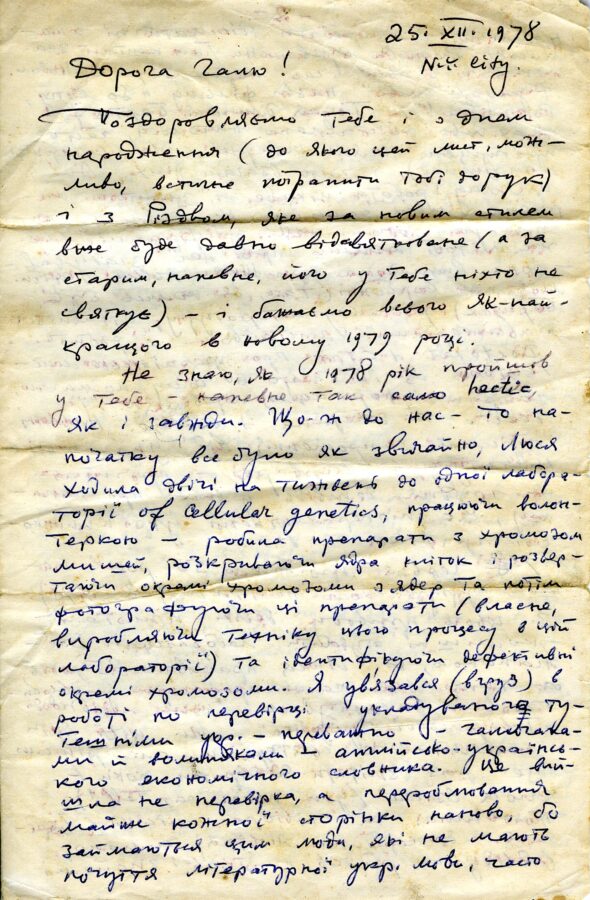 25. XII. 1978
N.Y. City.
Дорога Галю!
Поздоровляємо Тебе і з днем
народження (до якого цей лист, мож-
ливо, встигне потрапити Тобі до рук)
і з Різдвом, яке за новим стилем
вже буде давно відсвятковане (а за
старим, напевне, його у Тебе ніхто не
святкує) – і бажаємо всього як-най-
кращого в новому 1979 році.
Не знаю, як 1978 рік пройшов
у Тебе – напевне так само hectic,
як і завжди. Що-ж до нас – то на-
початку все було як звичайно, Люся
ходила двічі на тиждень до одної лабора-
торії of Cellular genetics, працюючи волон-
теркою – робила препарати з хромозом
мишей, розкриваючи ядра кліток і розвер-
таючи окремі хромозоми з ядер та потім
фотографуючи ці препарати (власне,
виробляючи техніку цього процесу в цій
лабораторії) та ідентифікуючи дефективні
окремі хромозоми. Я ув'язався (вгруз) в
роботі по перевірці укладуваного ту-
тешніми укр. – переважно – галичана-
ми й волиняками – англійсько-українсь-
кого економічного словника. Це вий-
шла не перевірка, а перероблювання
майже кожної сторінки наново, бо
займаються цим люди, які не мають
почуття літературної укр. мови, часто